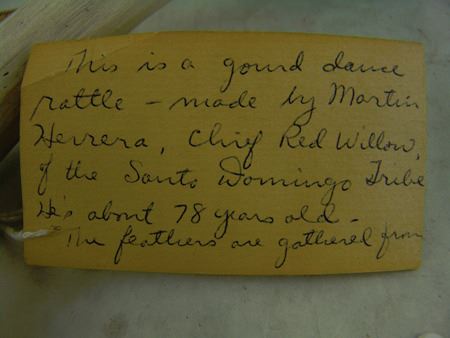 This is a gourd dance
rattle - made by Martin
Herrera, Chief Red Willow,
of the Santo Domingo Tribe
He's about 78 years old -
The feathers are gathered from